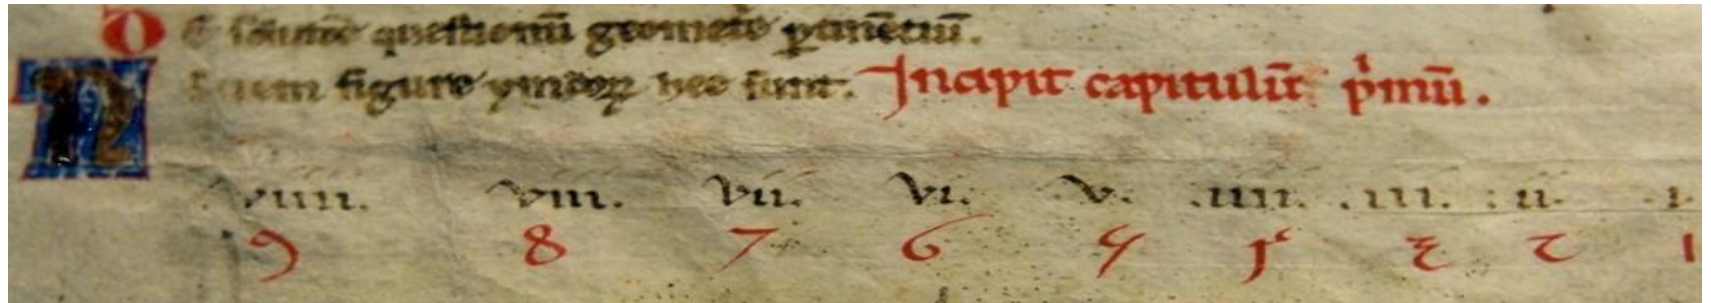 De solutiōe questionū geometͥe ꝑtinētiū.
Nouem figure yndoꝝ hee sunt. Incipit capitulū pͥmū.
viiii. viii. vii. vi. v. .iiii. .iii. :ii. .i.
9 8 7 6 5 4 3 2 1